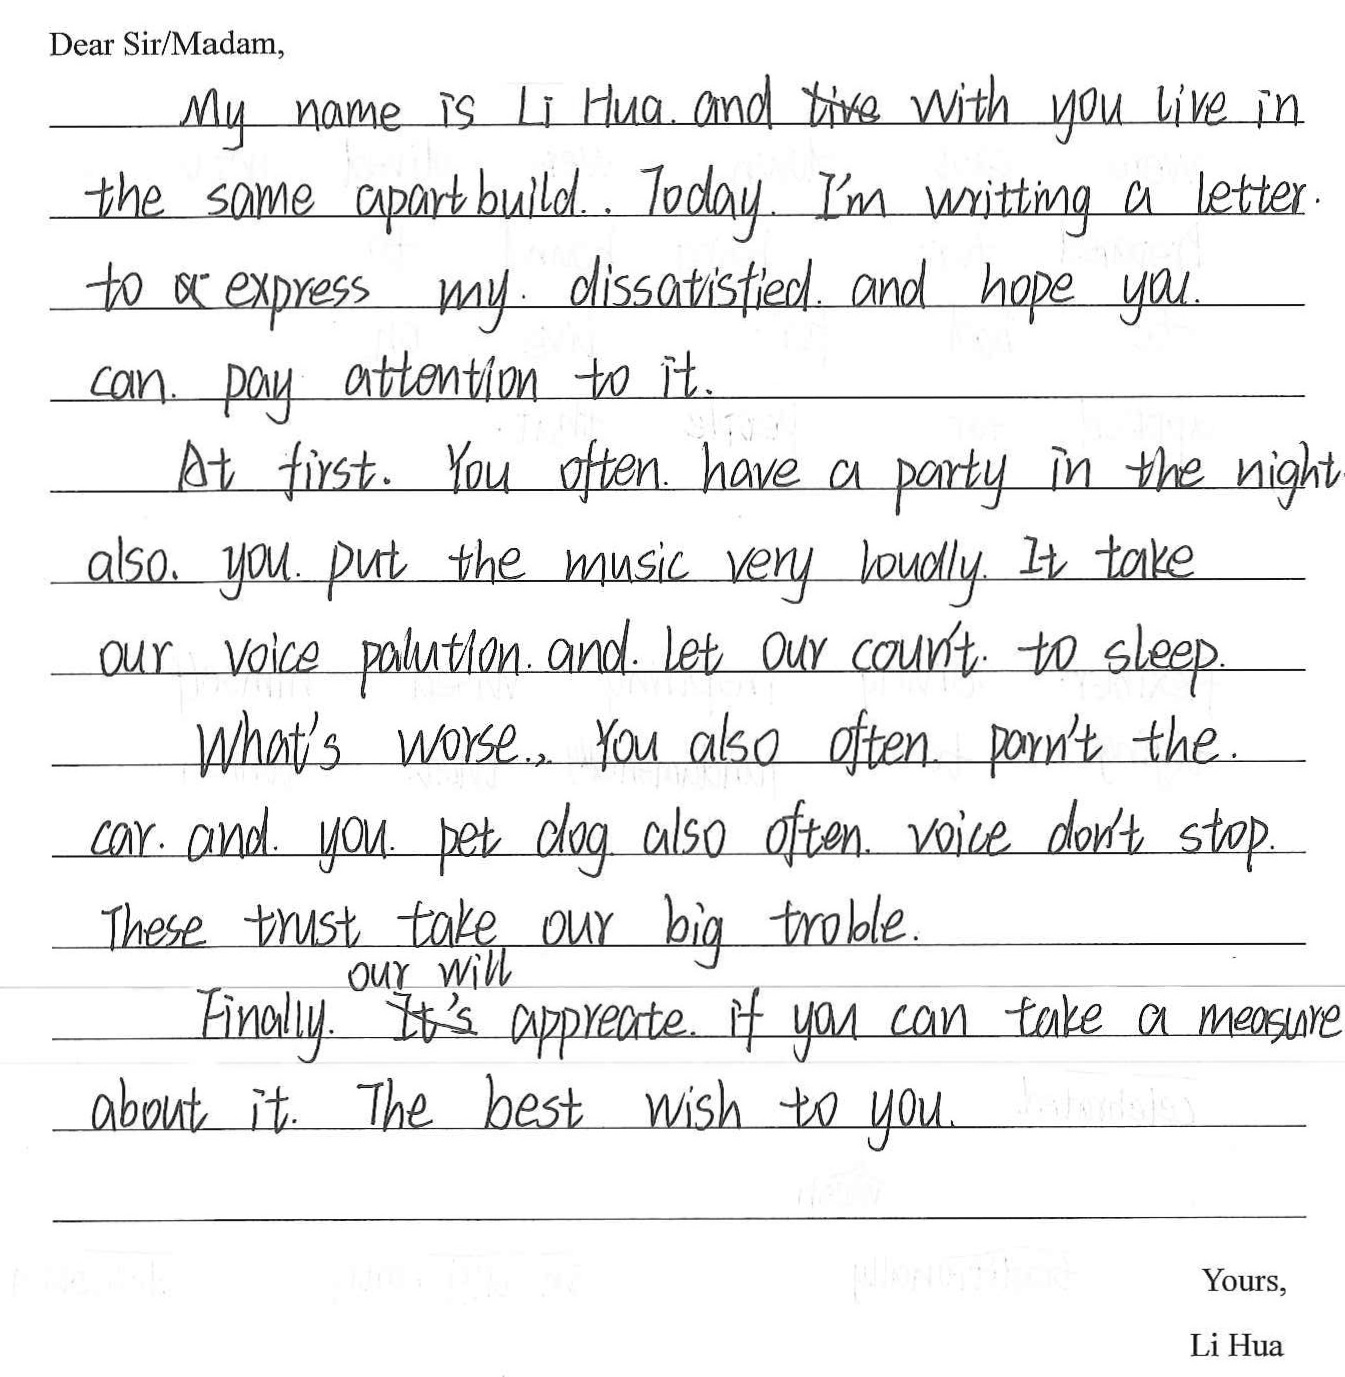 Dear Sir/Madam,
My name is Li Hua. and with you live in
the same apartbuild.. Today. I'm writting a letter.
to express my. dissatistied. and hope you.
can. pay attention to it.
At first. You often. have a party in the night
also. you. put the music very loudly. It take
our voice palution. and. let our coun't. to sleep.
What's worse.,. You also often. parn't the.
car. and. you. pet dog also often. voice don't stop.
These trust take our big troble.
our will
Finally. appreate. if you can take a measure
about it. The best wish to you.
Yours,
Li Hua